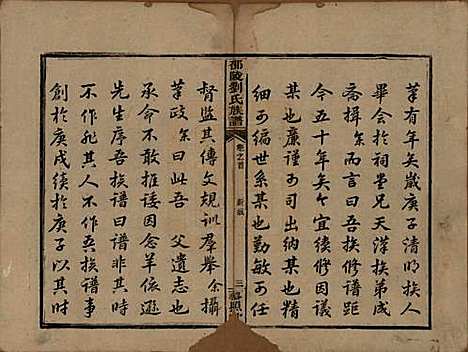 筆有年矣歲庚子清明族人
畢會於祠堂兄天漢族弟成
斋揖余而言曰吾族修譜距
今五十年矣今宜續修因議
某也廉謹可以出納某也精
細可编世系某也勤敏可任
邵陵劉氏族譜
卷之首
三
督監其傳文規訓羣舉余攝
筆政余曰此吾父遺志也
承命不敢推諉因念年係遜
先生序吾族譜曰譜非其時
不作非其人不作吾族譜事
創於庚戌續於庚子以其時